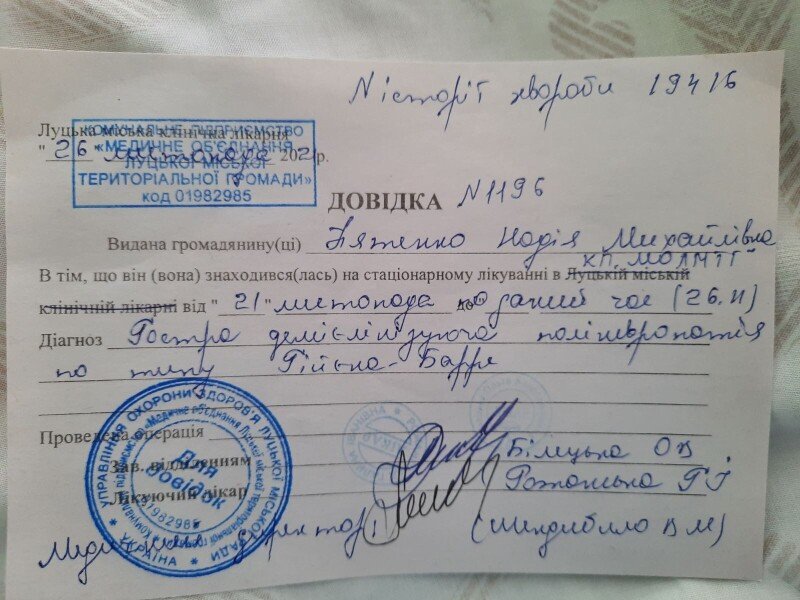 N історії хвороби 19416
Луцька міська клінічна лікарня
"26" листопада 2021р.
КОМУНАЛЬНЕ ПІДПРИЄМСТВО
«МЕДИЧНЕ ОБ'ЄДНАННЯ
ЛУЦЬКОЇ МІСЬКОЇ
ТЕРИТОРІАЛЬНОЇ ГРОМАДИ»
код 01982985
ДОВІДКА N1196
Видана громадянину(ці) Надія Михайлівна
КП "МОЛМТГ"
В тім, що він (вона) знаходився(лась) на стаціонарному лікуванні в Луцькій міській
клінічній лікарні від "21" листопада до по даний час (26.11)
Діагноз Гостра демієлінізуюча поліневропатія
по типу Гійєна-Барре
Проведена операція
Зав. відділенням Білецька О
Лікуючий лікар
Медичний директор
УПРАВЛІННЯ ОХОРОНИ ЗДОРОВ'Я ЛУЦЬКОЇ МІСЬКОЇ РАДИ
* УКРАЇНА *
Комунальне підприємство «Медичне об'єднання Луцької міської територіальної громади»
Для
довідок
01982985